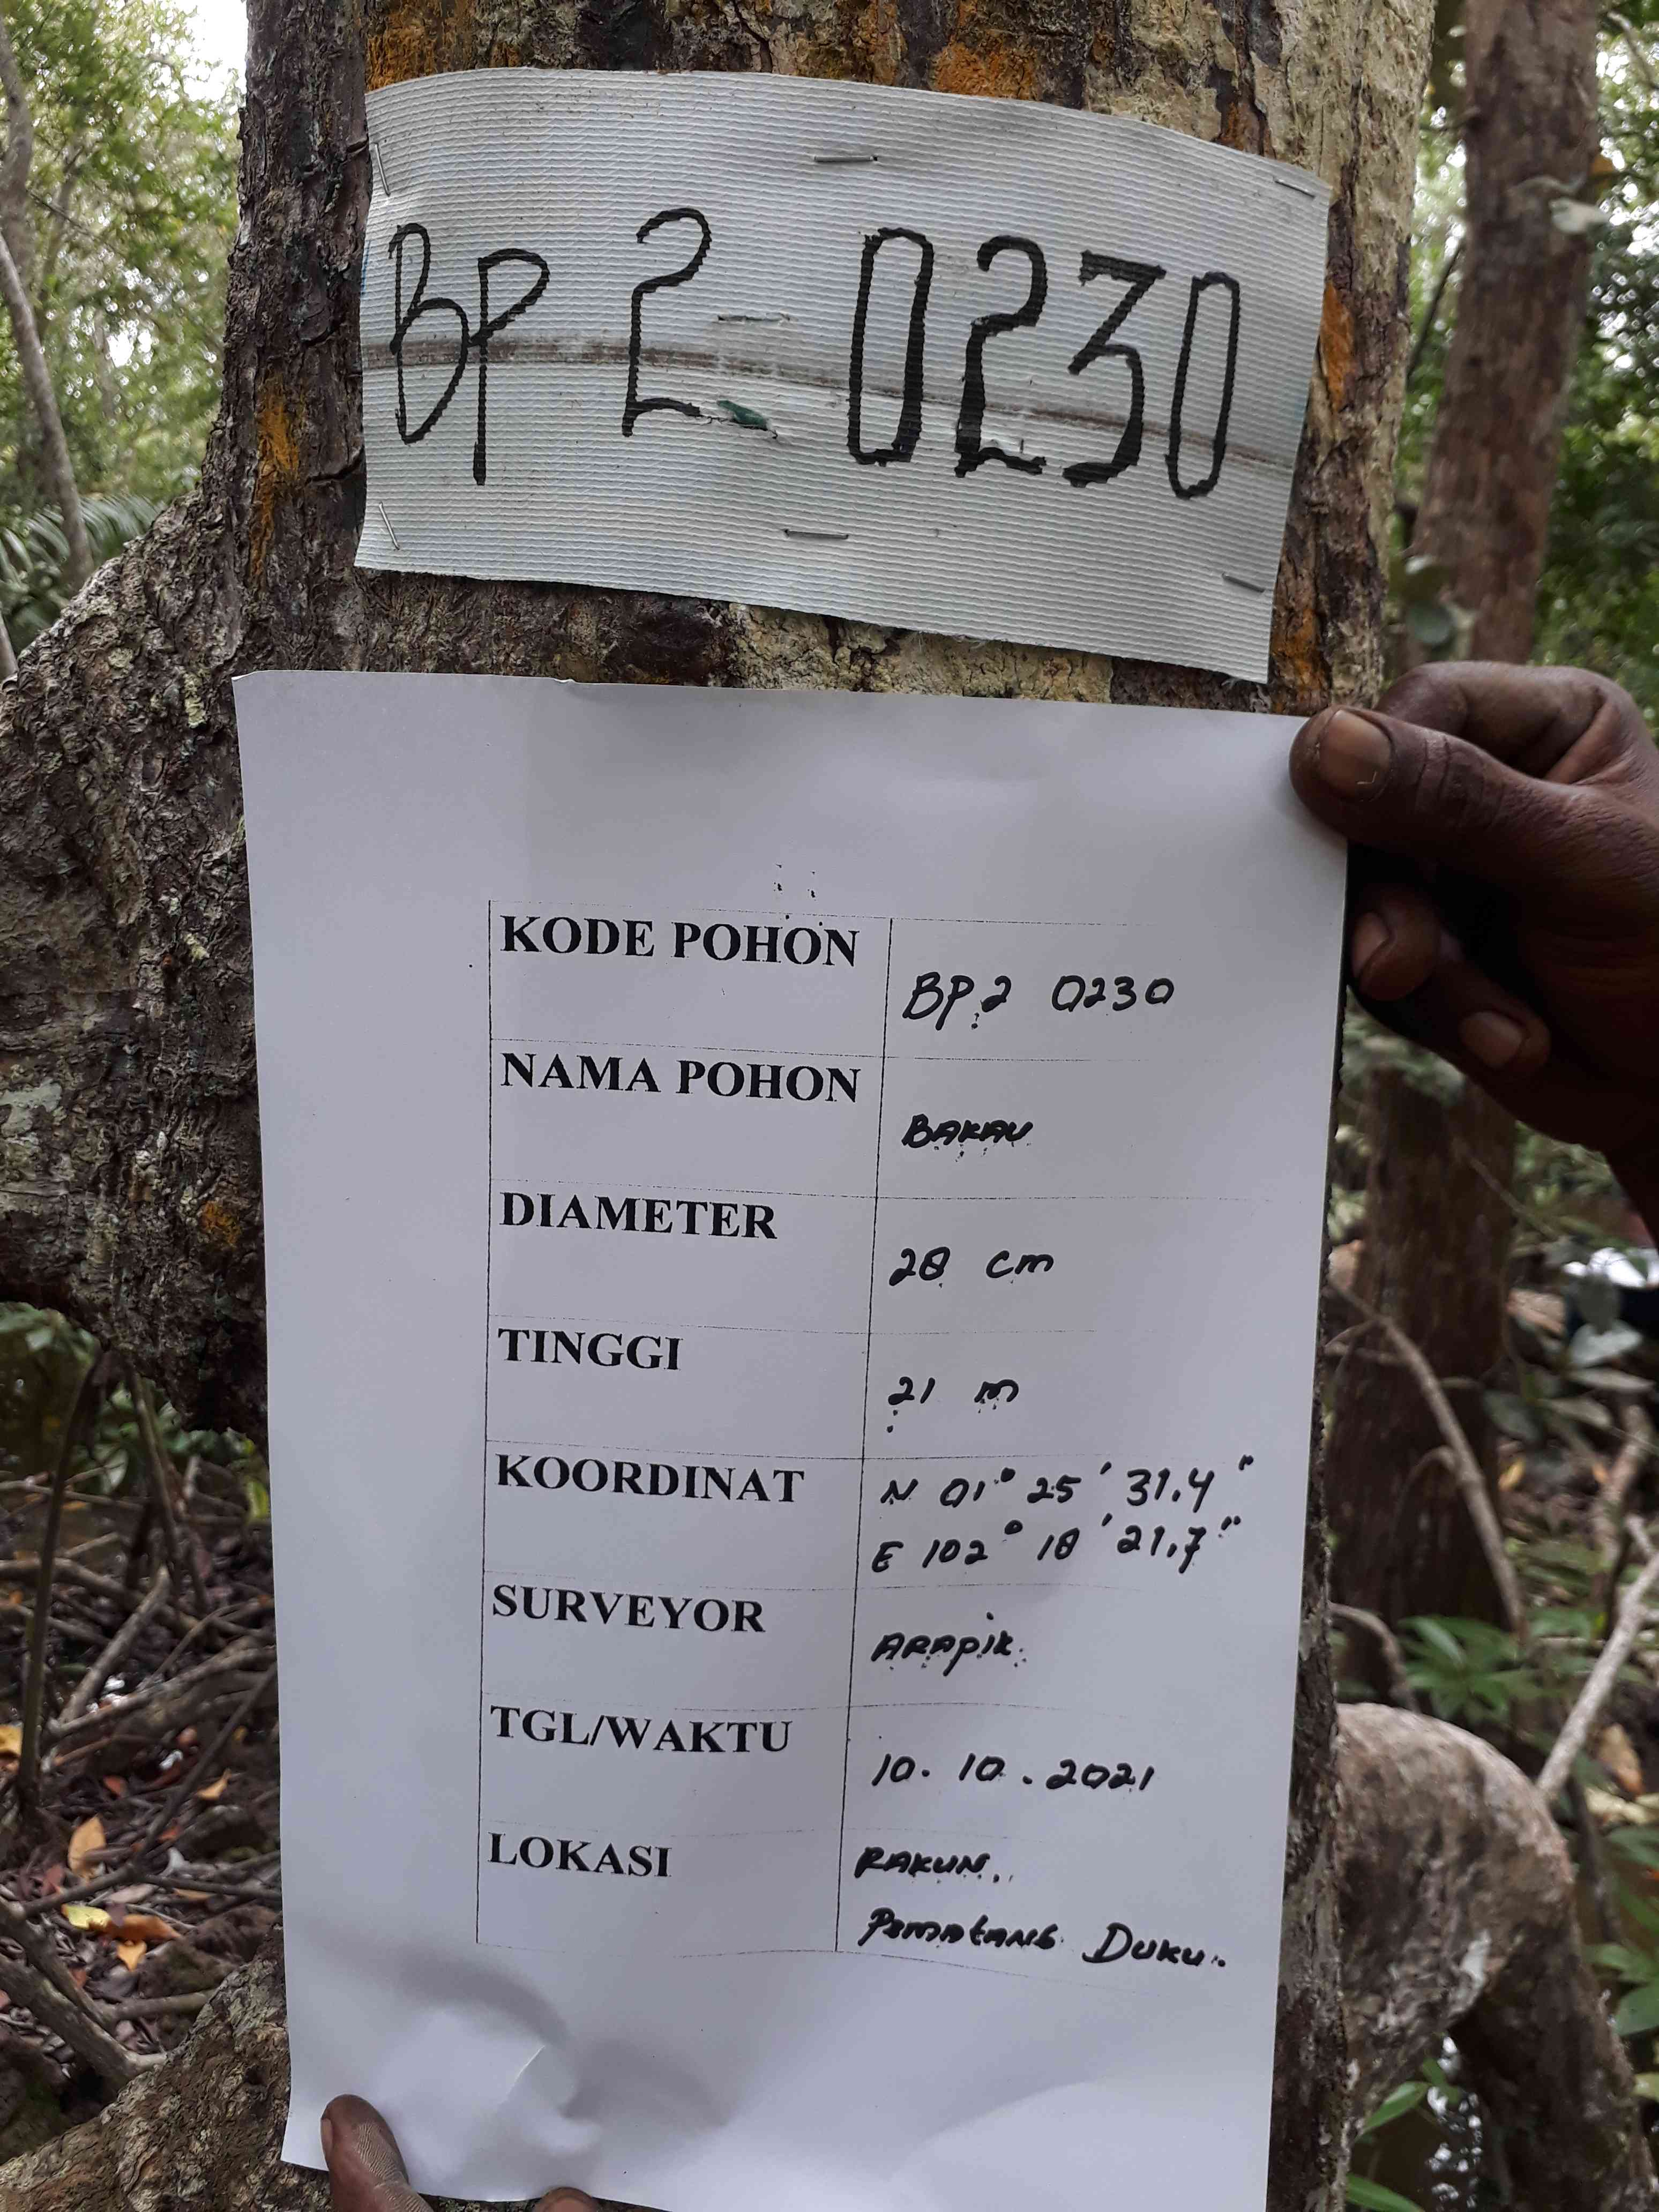 BP 2 0230
KODE POHON
BP.2 0230
NAMA POHON
BAKAU
DIAMETER
28 cm
TINGGI
21 m
KOORDINAT
N 01° 25 ' 31,4 "
E 102° 18 ' 21,7 "
SURVEYOR
ARApik.
TGL/WAKTU
10. 10. 2021
LOKASI
RAKUN.
PEMATANG DUKU.